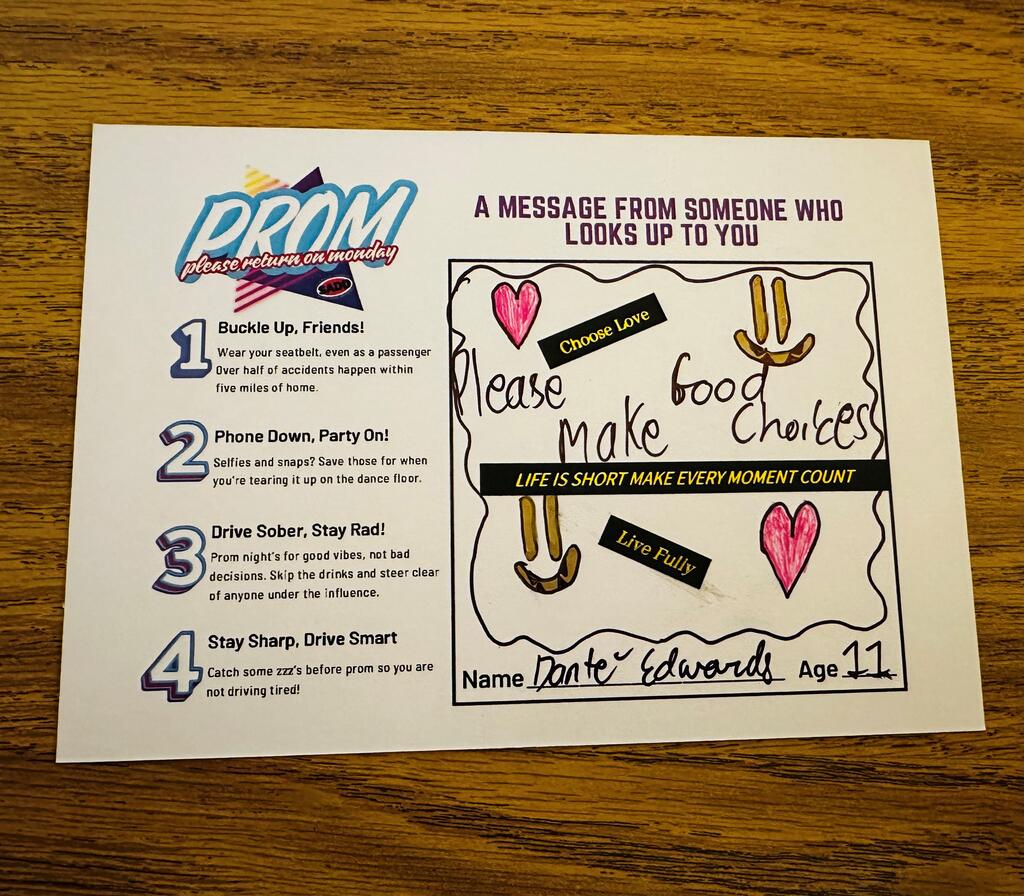 PROM
please return on monday
SADD
1
Buckle Up, Friends!
Wear your seatbelt, even as a passenger
Over half of accidents happen within
five miles of home.
2
Phone Down, Party On!
Selfies and snaps? Save those for when
you're tearing it up on the dance floor.
3
Drive Sober, Stay Rad!
Prom night's for good vibes, not bad
decisions. Skip the drinks and steer clear
of anyone under the influence.
4
Stay Sharp, Drive Smart
Catch some zzz's before prom so you are
not driving tired!
A MESSAGE FROM SOMEONE WHO
LOOKS UP TO YOU
Choose Love
Please Make Good Choices
LIFE IS SHORT MAKE EVERY MOMENT COUNT
Live Fully
Name Danté Edwards Age 11